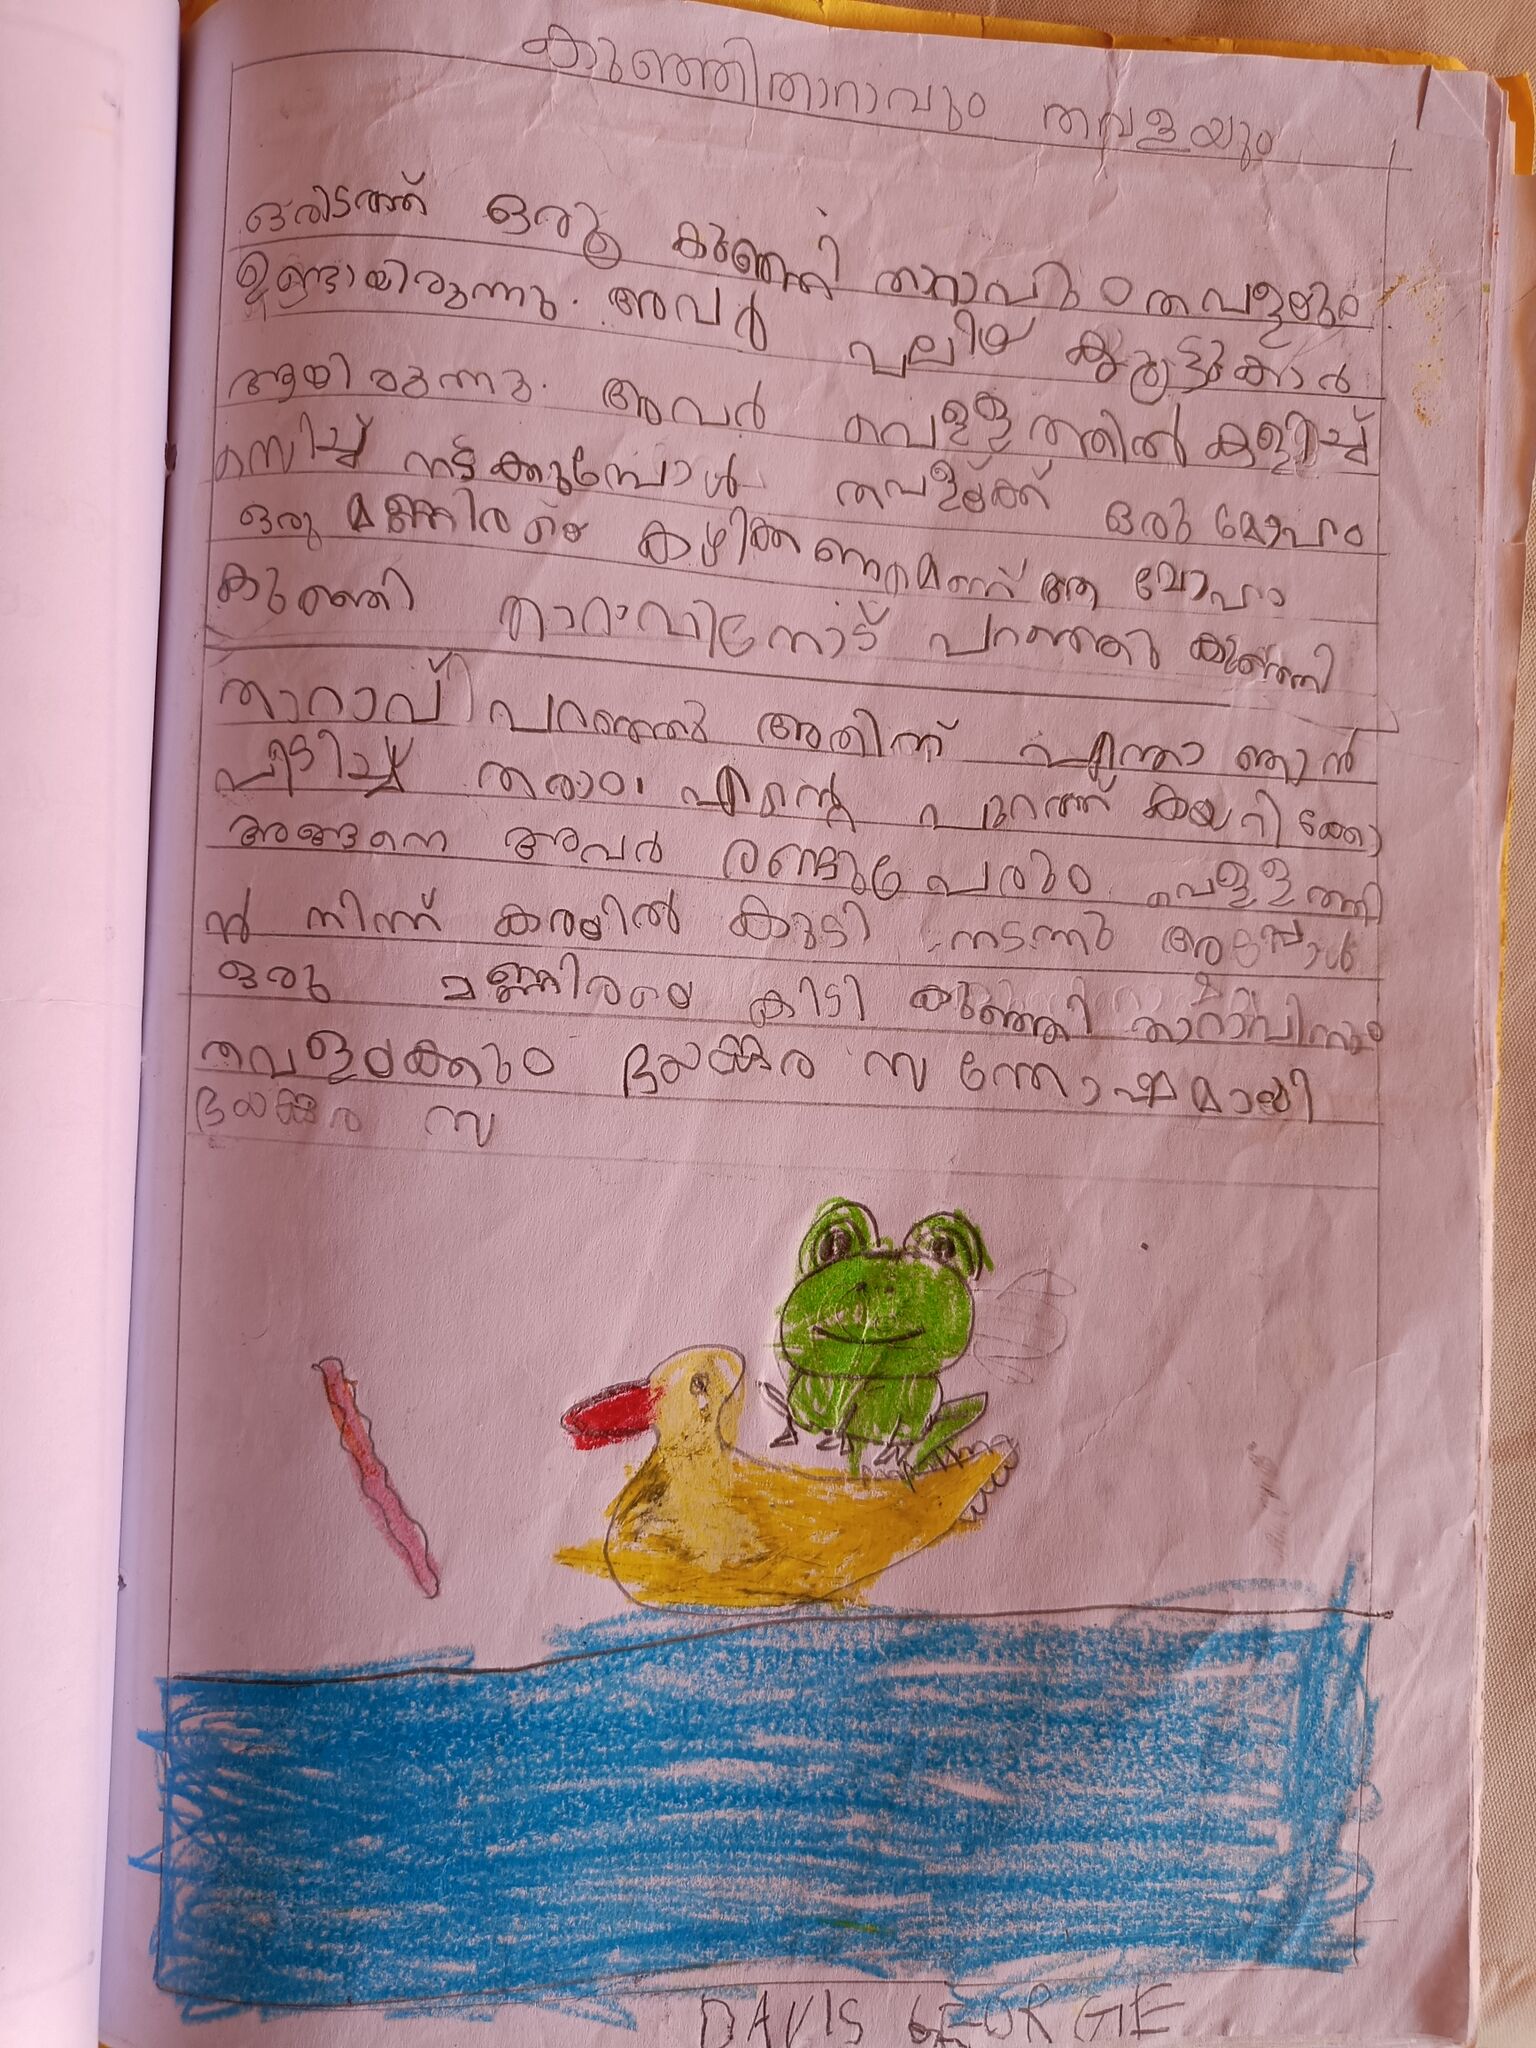 കുഞ്ഞിതാറാവും തവളയും
ഒരിടത്ത് ഒരു കുഞ്ഞി താറാവും തവളയും
ഉണ്ടായിരുന്നു. അവർ വലിയ കൂട്ടുകാർ
ആയിരുന്നു. അവർ വെള്ളത്തിൽ കളിച്ച്
രസിച്ച് നടക്കുമ്പോൾ തവളക്ക് ഒരു മോഹം
ഒരു മണ്ണിരയെ കഴിക്കണമെന്ന് ആ മോഹം
കുഞ്ഞി താറാവിനോട് പറഞ്ഞു കുഞ്ഞി
താറാവ് പറഞ്ഞു അതിന് എന്താ ഞാൻ
പിടിച്ച് തരാം എന്റെ പുറത്ത് കയറിക്കോ
അങ്ങനെ അവർ രണ്ടുപേരും വെള്ളത്തി
ൽ നിന്ന് കരയിൽ കൂടി നടന്നു അപ്പോൾ
ഒരു മണ്ണിരയെ കിട്ടി കുഞ്ഞി താറാവിനും
തവളക്കും ഭയങ്കര സന്തോഷമായി
ഭയങ്കര സ
DAVIS GEORGE